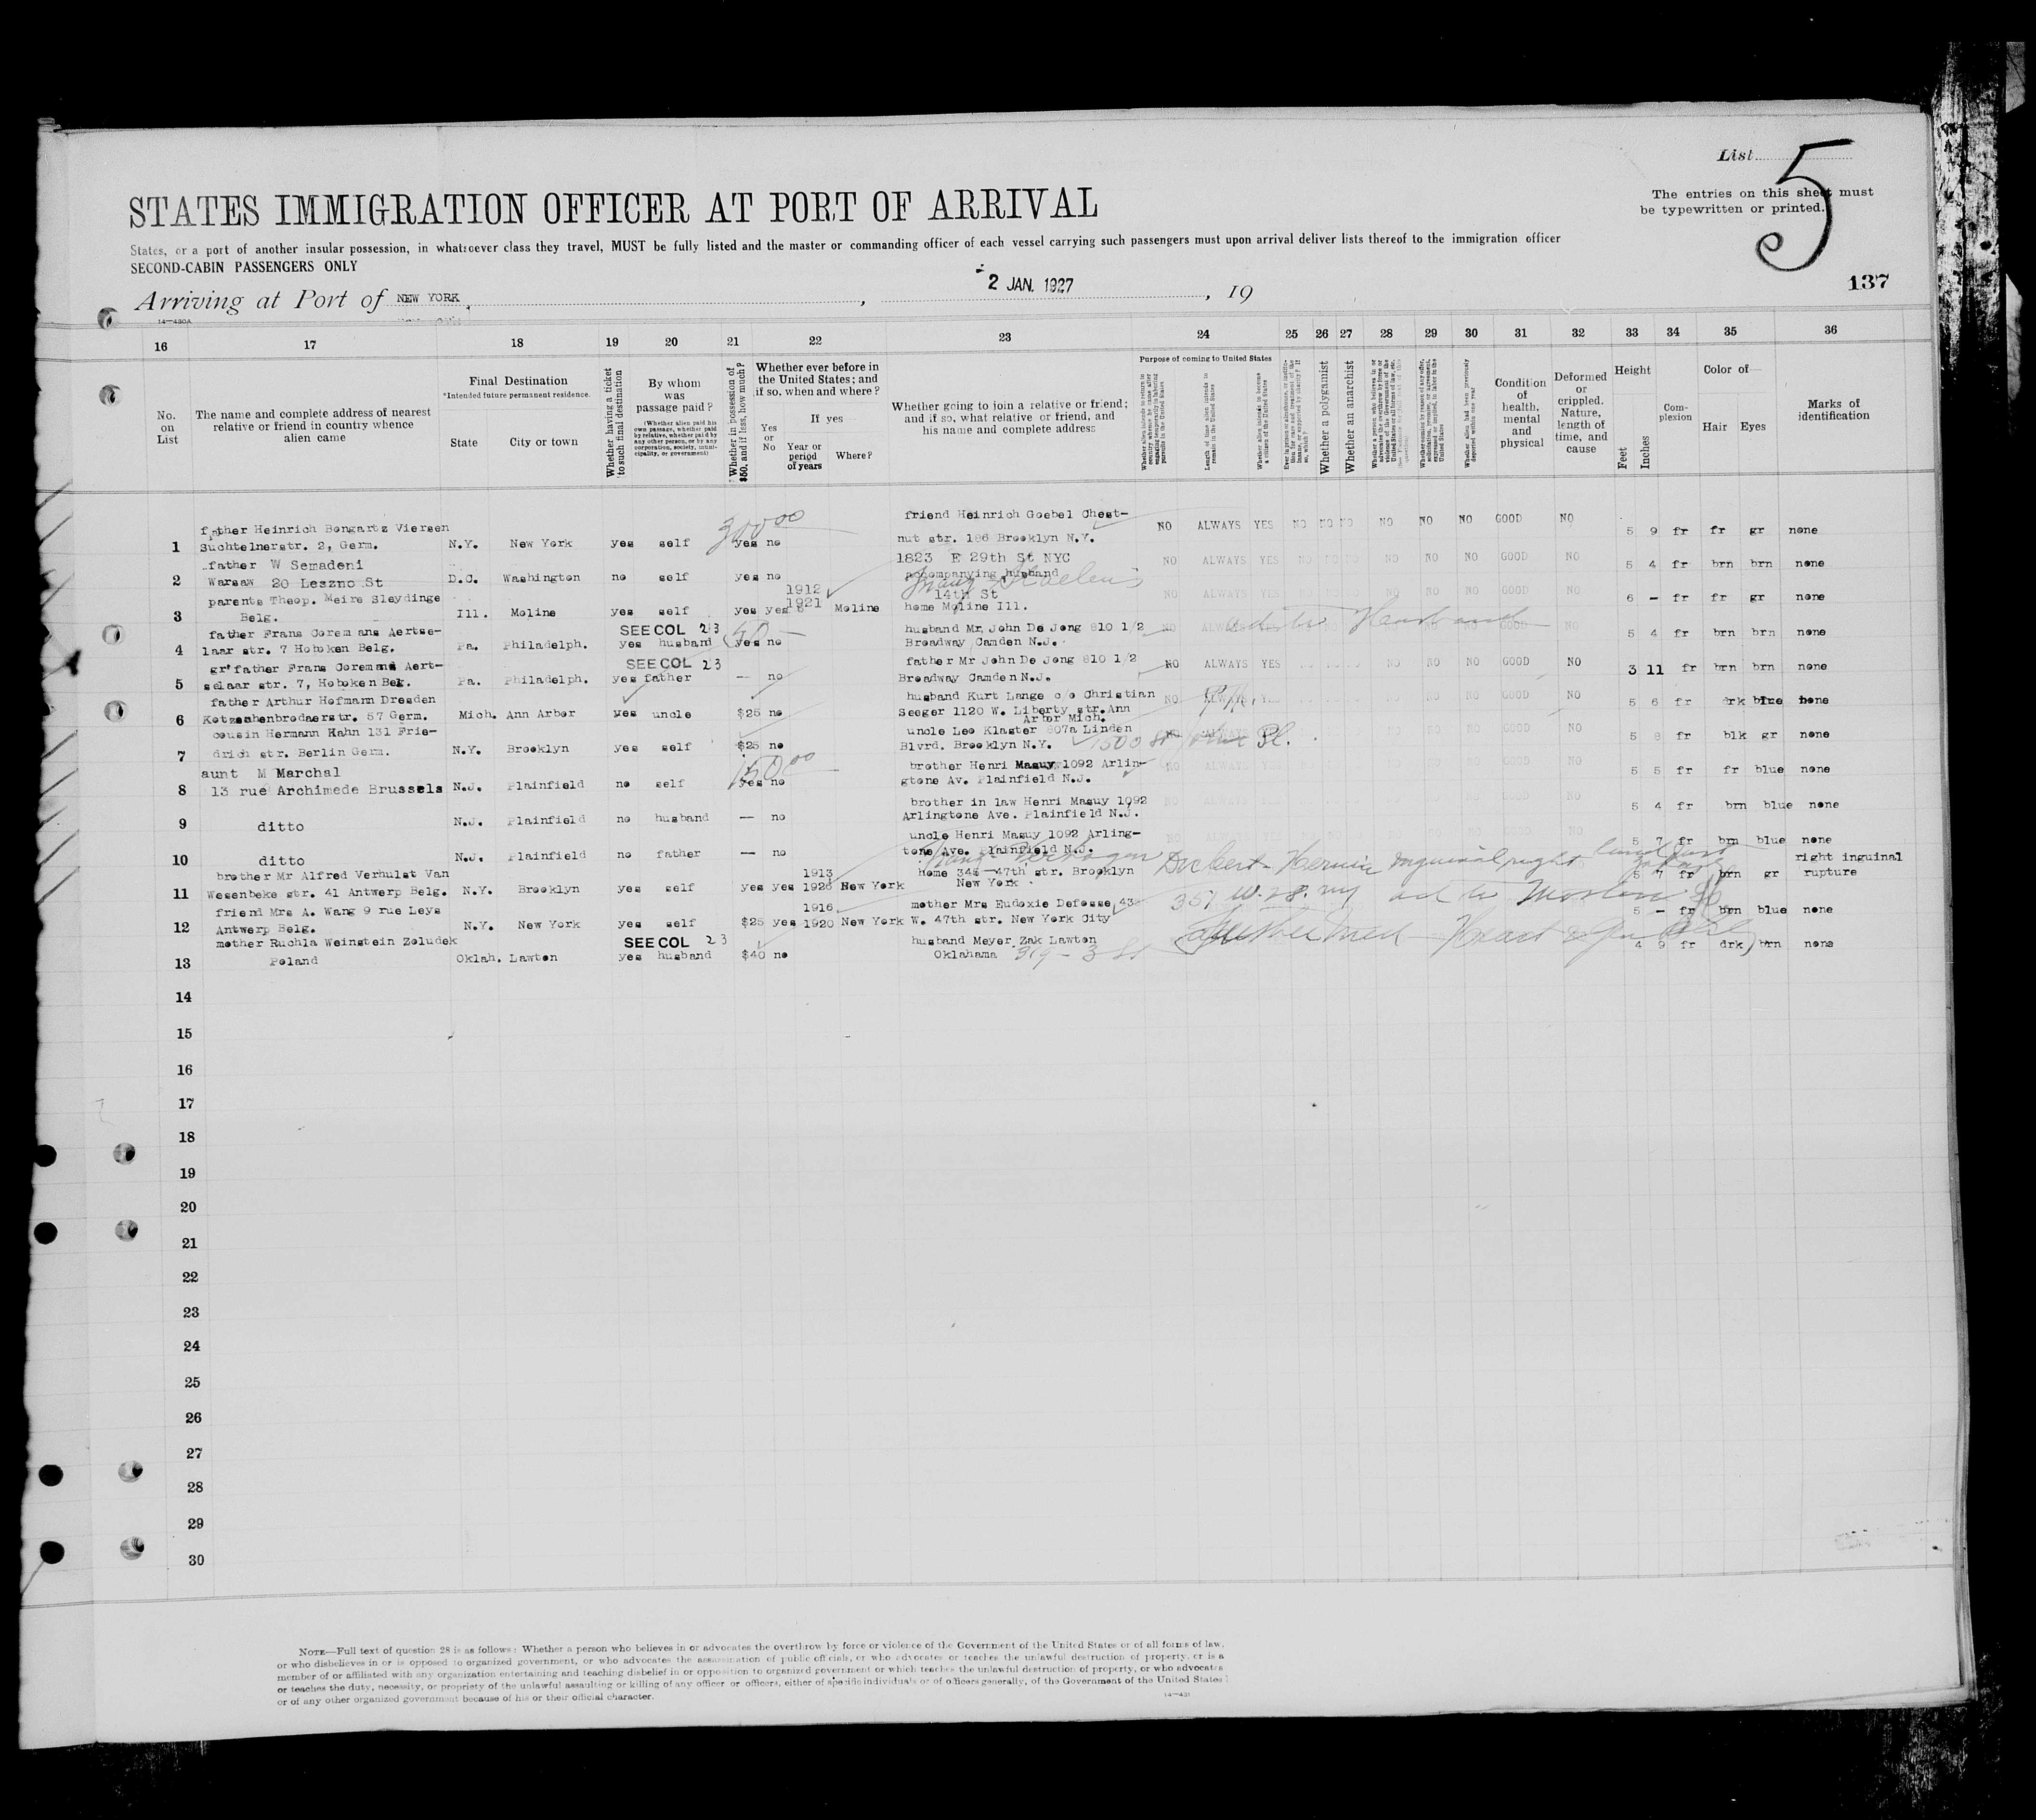 List 5
The entries on this sheet must
be typewritten or printed.
STATES IMMIGRATION OFFICER AT PORT OF ARRIVAL
States, or a port of another insular possession, in whatsoever class they travel, MUST be fully listed and the master or commanding officer of each vessel carrying such passengers must upon arrival deliver lists thereof to the immigration officer
SECOND-CABIN PASSENGERS ONLY
Arriving at Port of NEW YORK, 2 JAN. 1927, 19
137
14—430A
16 17 18 19 20 21 22 23 24 25 26 27 28 29 30 31 32 33 34 35 36
No. on List
The name and complete address of nearest relative or friend in country whence alien came
Final Destination
*Intended future permanent residence.
State City or town
Whether having a ticket to such final destination
By whom was passage paid?
(Whether alien paid his own passage, whether paid by relative, whether paid by any other person, or by any corporation, society, municipality, or government)
Whether in possession of $50, and if less, how much?
Whether ever before in the United States; and if so, when and where?
Yes or No
If yes
Year or period of years
Where?
Whether going to join a relative or friend; and if so, what relative or friend, and his name and complete address
Purpose of coming to United States
Length of time alien intends to remain in the United States
Whether alien intends to become a citizen of the United States
Whether a polygamist
Whether an anarchist
Whether alien had been previously deported within one year
Condition of health, mental and physical
Deformed or crippled. Nature, length of time, and cause
Height
Feet Inches
Complexion
Color of—
Hair Eyes
Marks of identification
father Heinrich Bongartz Viersen friend Heinrich Goebel Chest-
1 Suchtelnerstr. 2, Germ. N.Y. New York yes self 300 00 yes no nut str. 186 Brooklyn N.Y. NO ALWAYS YES NO NO NO NO NO NO GOOD NO 5 9 fr fr gr none
father W Semadeni 1823 E 29th St NYC
2 Warsaw 20 Leszno St D.C. Washington no self yes no accompanying husband NO ALWAYS YES NO NO NO NO NO NO GOOD NO 5 4 fr brn brn none
14th St
parents Theop. Meire Sleydinge 1912
3 Belg. Ill. Moline yes self yes yes 1921 Moline home Moline Ill. NO ALWAYS YES NO NO NO NO NO NO GOOD NO 6 – fr fr gr none
father Frans Coremans Aertse- SEE COL 23 husband Mr. John De Jong 810 1/2
4 laar str. 7 Hoboken Belg. Pa. Philadelph. yes husband 50 – yes no Broadway Camden N.J. NO GOOD NO 5 4 fr brn brn none
gr'father Frans Coremans Aert- SEE COL 23 father Mr John De Jong 810 1/2
5 selaar str. 7, Hoboken Bel. Pa. Philadelph. yes father — no Broadway Camden N.J. NO ALWAYS YES NO NO NO GOOD NO 3 11 fr brn brn none
father Arthur Hofmann Dresden husband Kurt Lange c/o Christian
6 Kotzschenbrodaerstr. 57 Germ. Mich. Ann Arbor yes uncle $25 no Seeger 1120 W. Liberty str. Ann Arbor Mich. NO ALWAYS NO NO NO GOOD NO 5 6 fr drk blue none
cousin Hermann Kahn 131 Frie- uncle Leo Klaster 807a Linden
7 drich str. Berlin Germ. N.Y. Brooklyn yes self $25 no Blvrd. Brooklyn N.Y. 1500 Pl. NO NO NO GOOD NO 5 8 fr blk gr none
aunt M Marchal brother Henri Masuy 1092 Arlin-
8 13 rue Archimede Brussels N.J. Plainfield no self 150 00 yes no gtone Av. Plainfield N.J. NO ALWAYS YES NO NO NO GOOD NO 5 5 fr fr blue none
brother in law Henri Masuy 1092
9 ditto N.J. Plainfield no husband — no Arlingtone Ave. Plainfield N.J. NO ALWAYS GOOD NO 5 4 fr brn blue none
uncle Henri Masuy 1092 Arling-
10 ditto N.J. Plainfield no father — no tone Ave. Plainfield N.J. NO ALWAYS YES GOOD NO 5 7 fr brn blue none
Hernia inguinal right
brother Mr Alfred Verhulst Van 1913 Home 345—47th str. Brooklyn right inguinal
11 Wesenbeke str. 41 Antwerp Belg. N.Y. Brooklyn yes self yes yes 1926 New York New York 5 7 fr brn gr rupture
friend Mrs A. Wang 9 rue Leys 1916 mother Mrs Eudoxie Defosse 43 357 W. 28. NY
12 Antwerp Belg. N.Y. New York yes self $25 yes 1920 New York W. 47th str. New York City 5 – fr brn blue none
mother Ruchla Weinstein Zoludek SEE COL 23 husband Meyer Zak Lawton
13 Poland Oklah. Lawton yes husband $40 no Oklahama 319 – 3 St 4 9 fr drk brn none
14
15
16
17
18
19
20
21
22
23
24
25
26
27
28
29
30
NOTE—Full text of question 28 is as follows: Whether a person who believes in or advocates the overthrow by force or violence of the Government of the United States or of all forms of law,
or who disbelieves in or is opposed to organized government, or who advocates the assassination of public officials, or who advocates or teaches the unlawful destruction of property, or is a
member of or affiliated with any organization entertaining and teaching disbelief in or opposition to organized government or which teaches the unlawful destruction of property, or who advocates
or teaches the duty, necessity, or propriety of the unlawful assaulting or killing of any officer or officers, either of specific individuals or of officers generally, of the Government of the United States
or of any other organized government because of his or their official character.
14—431